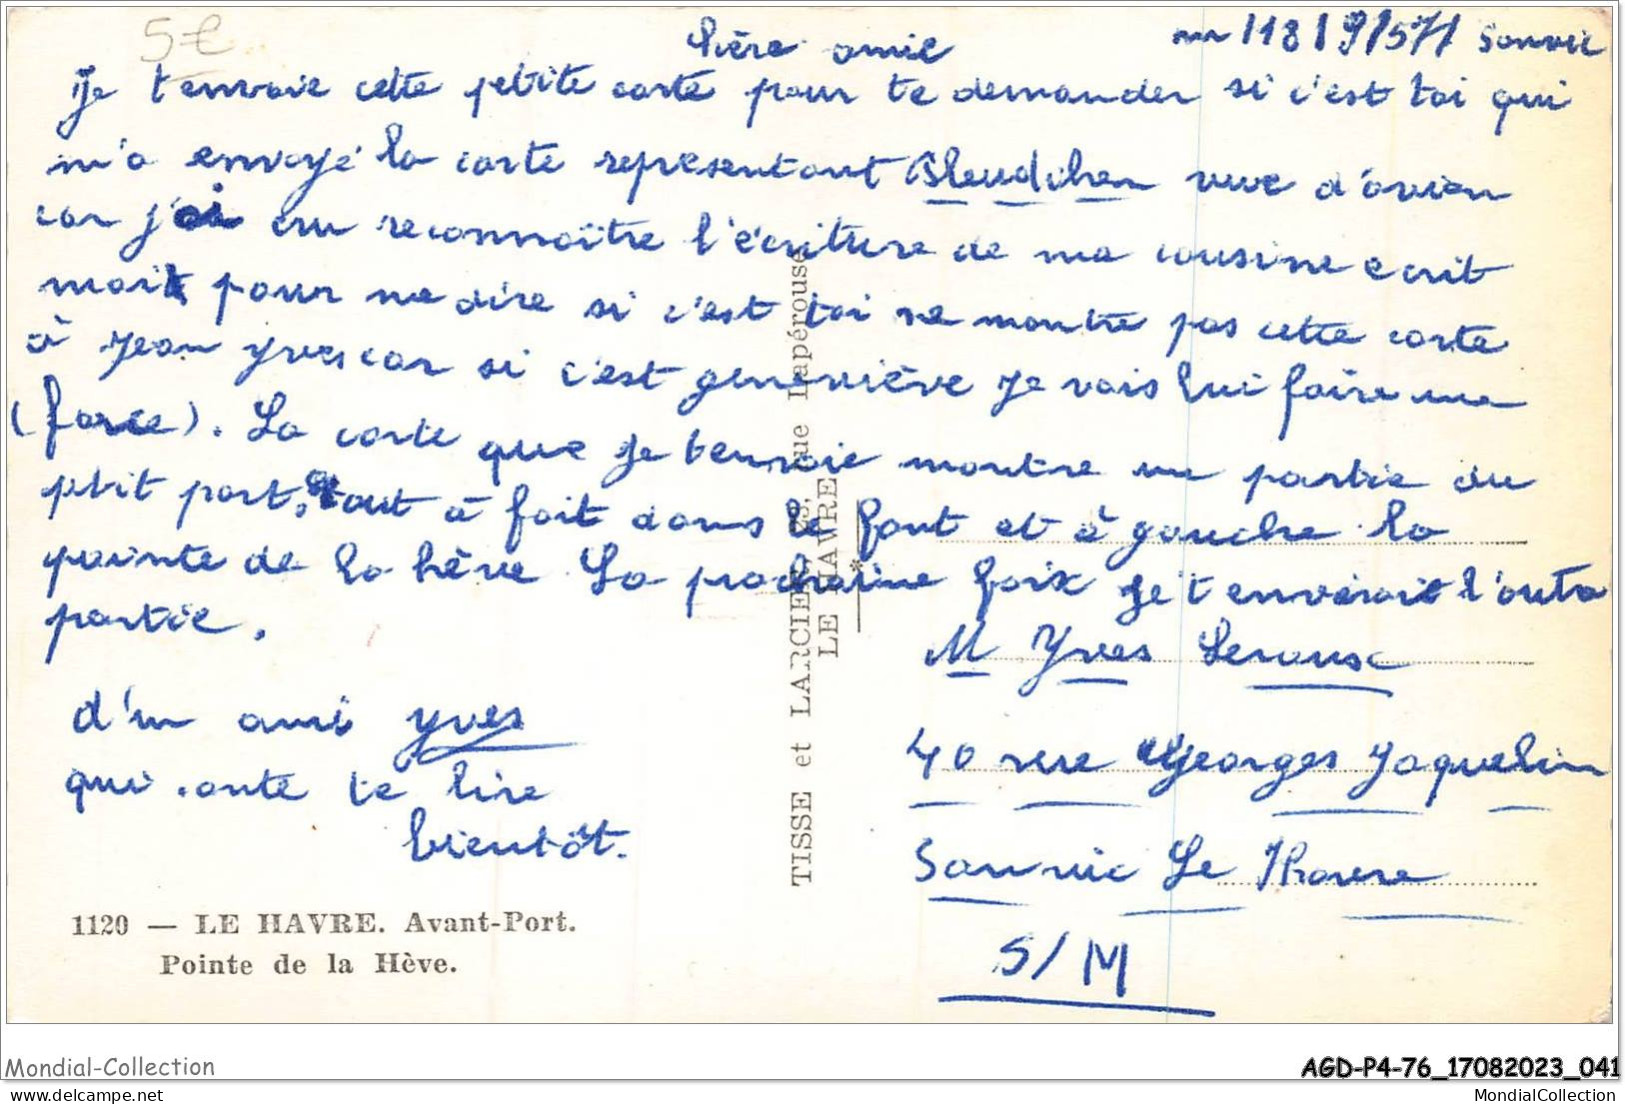 5€
/18/9/57/ Sanvic
Chère amie
Je t'envoie cette petite carte pour te demander si c'est toi qui
m'a envoyé la carte representant Bleudihen vue d'avion
car j'ai cru reconnaître l'écriture de ma cousine ecrit
moi pour me dire si c'est toi ne montre pas cette carte
à Jean Yves car si c'est geneviève je vais lui faire une
(farce). La carte que je t'envoie montre une partie du
ptit port, tout à fait dans le font et à gauche la
pointe de la hève. La prochaine foix je t'enverait l'autre
partie.
d'un ami yves
qui te lire
bientôt.
M Yves Leroux
40 rue Georges Jaquelin
Sanvic Le Havre
S/M
TISSE et LARCIER, 23, rue Lapérouse
LE HAVRE
*
1120 — LE HAVRE. Avant-Port.
Pointe de la Hève.
Mondial-Collection
AGD-P4-76_17082023_041
MondialCollection